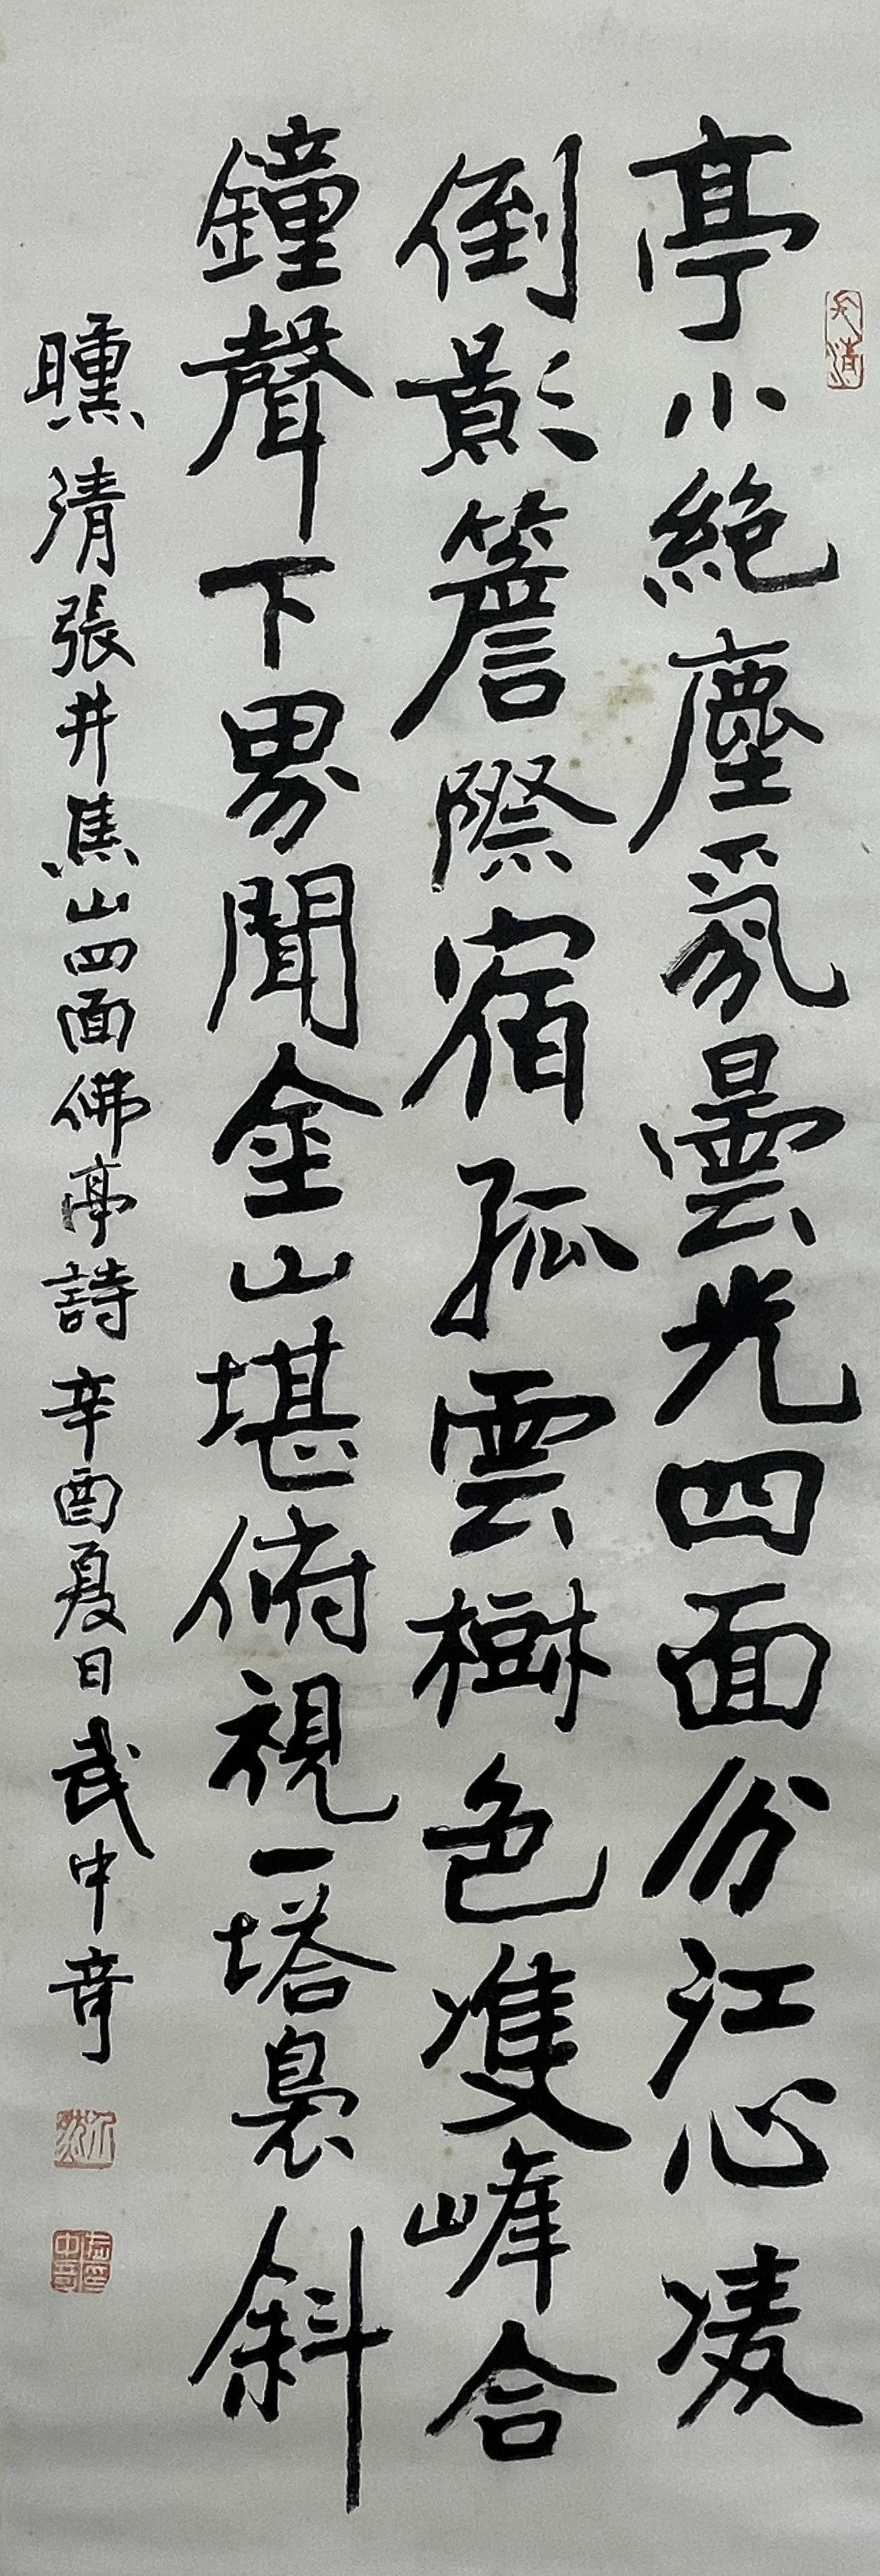 亭小絶塵氛曇光四面分江心凌
倒影簷際宿孤雲樹色雙峰合
鐘聲下界聞金山堪俯視一塔裊斜
清張井焦山四面佛亭詩辛酉夏日武中奇